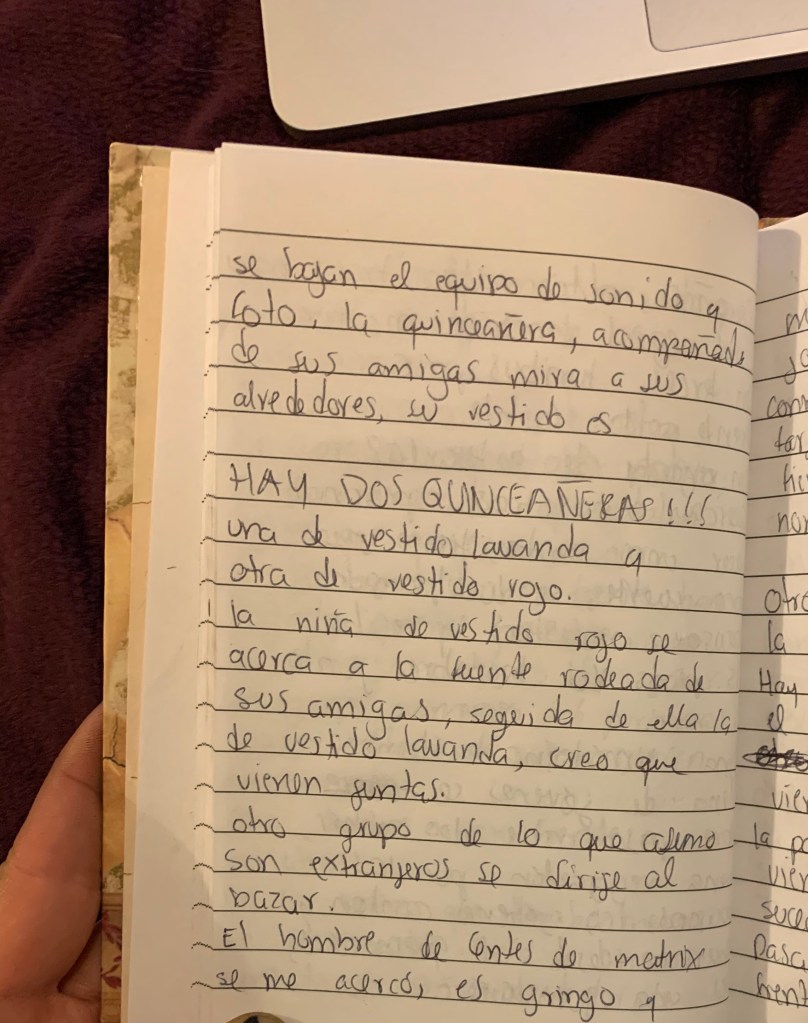 se bajan el equipo de sonido y
foto, la quinceañera, acompañada
de sus amigas mira a sus
alrededores, su vestido es
HAY DOS QUINCEAÑERAS!!!
una de vestido lavanda y
otra de vestido rojo.
la niña de vestido rojo se
acerca a la fuente rodeada de
sus amigas, seguida de ella la
de vestido lavanda, creo que
vienen juntas.
otro grupo de lo que asumo
son extranjeros se dirije al
bazar.
El hombre de lentes de matrix
se me acercó, es gringo y
otro
la
Hay
el